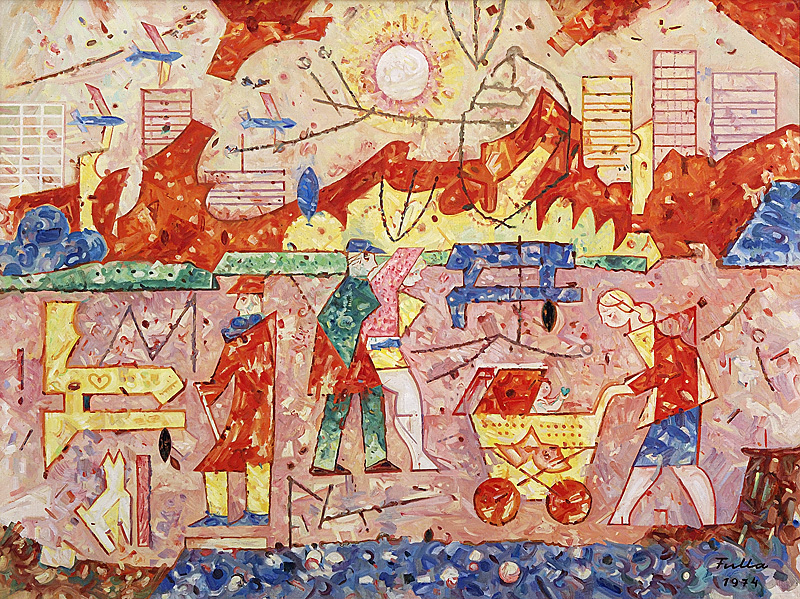 Fulla
1974